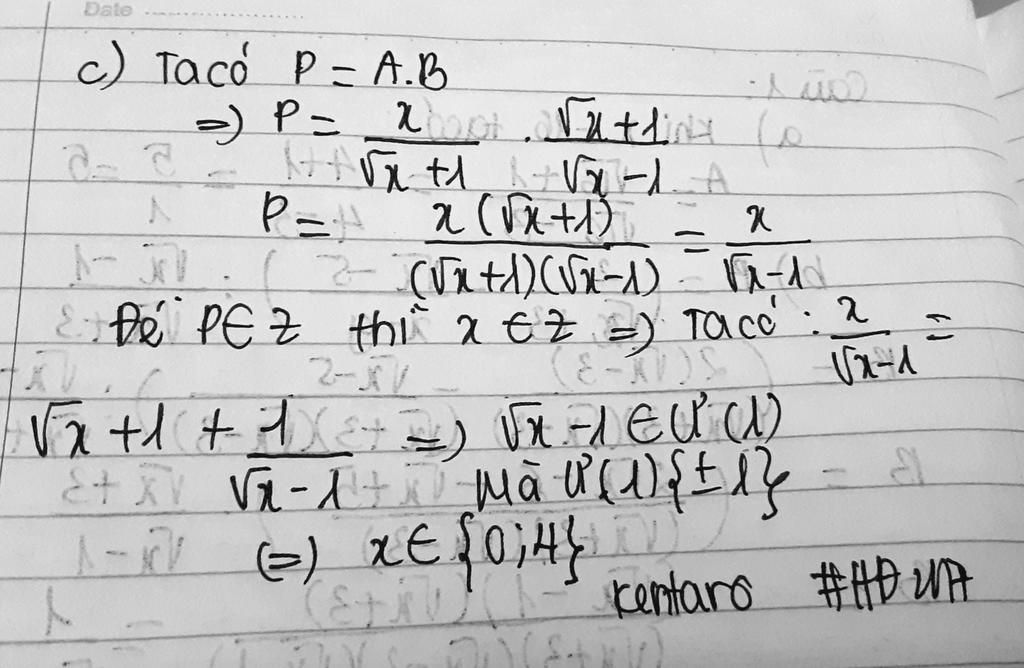 Date
c) Ta có P = A.B
=) P = x/(√x +1) . (√x+1)/(√x-1)
P = x(√x+1)/((√x+1)(√x-1)) = x/(√x-1)
Để P∈Z thì x ∈ Z =) Ta có : x/(√x-1) =
√x +1 + 1/(√x-1) =) √x -1 ∈ Ư(1)
Mà Ư(1){±1}
(=) x∈ {0;4}
kentaro